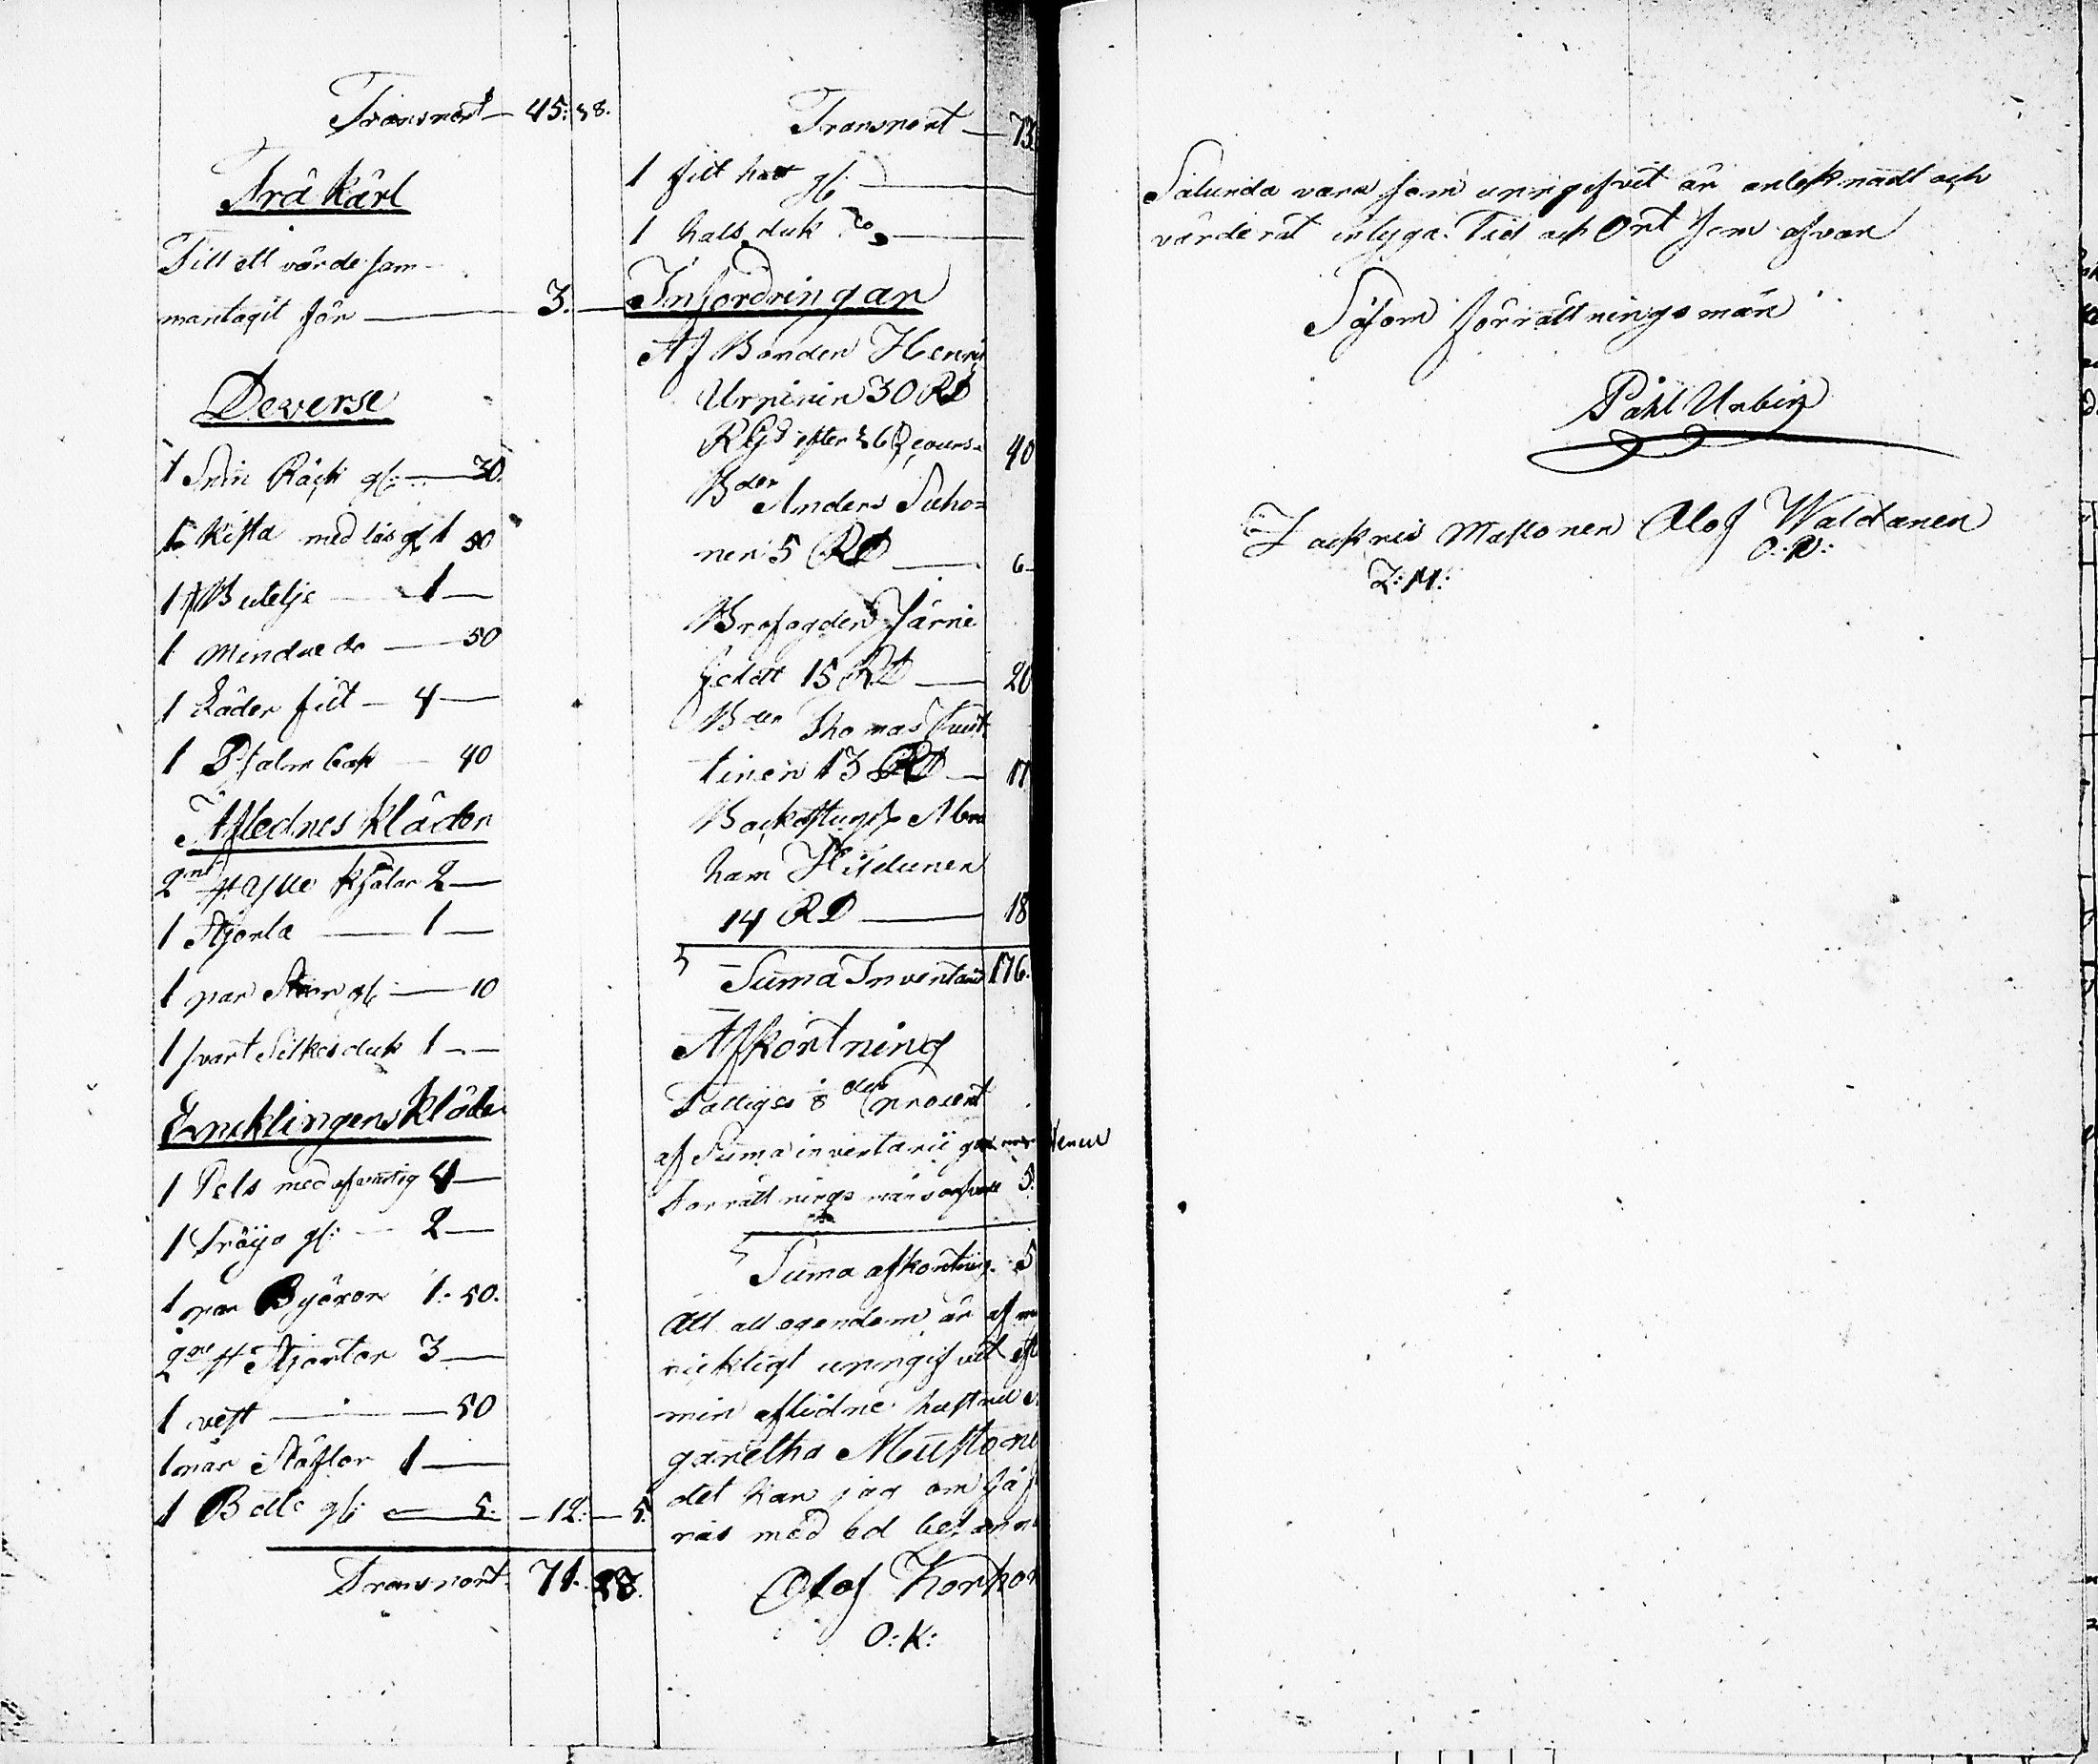 Transport 45: 58.
Trä kärl
Till ett värde sam-
mantagit för 3.
Deverse
1 Skin Räck gl: 30.
1 Kista med lås gl 1 50
1 Butelje 1
1 mindre do 50
1 Läder fält 4
1 Psalm bok 40
Aflednes kläder
2ne st Ylle kjolar 2
1 Skjorta 1
1 par Skor gl: 10
1 svart Silkes duk 1
Encklingens kläder
1 Pels med 4
1 Tröija gl: 2
1 par Byxor 1: 50.
2ne st Skjortor 3
1 vest 50
1 par Stöflor 1
1 Bälte gl: 5. 12: 5.
Transport 71. 58.
Transport 73.
1 filt hatt gl:
1 hals duk do
Infordringar
Af Bonden Henrik
Urpinin 30 RD
RGs efter cours 40
Bden Anders Suho-
nen 5 RD 6
Brofogden Järne
feldt 15 RD 20
Bden Thomas
tinen 13 RD 17
Backstug: Abra
ham Hildunen
14 RD 18
Suma Inventarii 176.
Afkortning
Fattiges 1/8 dels procent
af Suma inventarii
Förrättnings mäns 5.
Suma afkortning 5
Att all egendom är af
ricktigt uppgifvit
min aflidne hustru
garetha Mustone
det kan jag om så
ras med ed
Olof Korhon
O: K:
Sålunda vara som uppgifvit är anteknadt och
värderat intyga. Tid och Ort som ofvan
Såsom förrättningsmän
Påhl Urbin
Zackris Mustonen Olof Waldanen
Z: M: O: W: